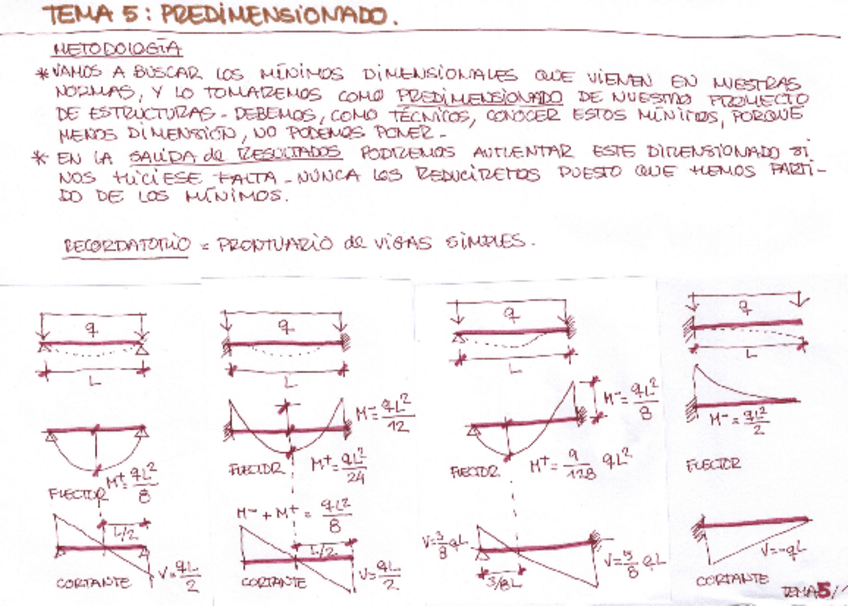 TEMA 5: PREDIMENSIONADO.
METODOLOGÍA
* VAMOS A BUSCAR LOS MÍNIMOS DIMENSIONALES QUE VIENEN EN NUESTRAS
NORMAS, Y LO TOMAREMOS COMO PREDIMENSIONADO DE NUESTRO PROYECTO
DE ESTRUCTURAS - DEBEMOS, COMO TÉCNICOS, CONOCER ESTOS MÍNIMOS, PORQUE
MENOS DIMENSIÓN, NO PODEMOS PONER -
* EN LA SALIDA de RESULTADOS PODREMOS AUMENTAR ESTE DIMENSIONADO SI
NOS HICIESE FALTA - NUNCA LOS REDUCIREMOS PUESTO QUE HEMOS PARTI-
DO DE LOS MÍNIMOS.
RECORDATORIO = PRONTUARIO de VIGAS SIMPLES.
q
L
M+ = qL²/8
FLECTOR
L/2
V = qL/2
CORTANTE
q
L
M- = qL²/12
FLECTOR
M+ = qL²/24
M- + M+ = qL²/8
L/2
V = qL/2
CORTANTE
q
L
M- = qL²/8
FLECTOR
M+ = 9/128 qL²
V = 3/8 qL
3/8L
V = 5/8 qL
CORTANTE
q
L
M- = qL²/2
FLECTOR
V = -qL
CORTANTE
TEMA 5/1